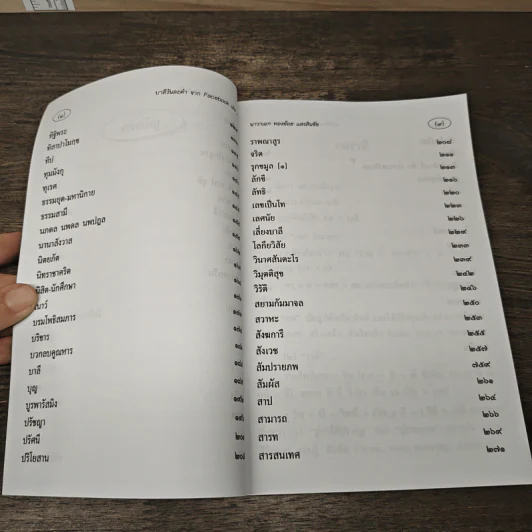 บาลีวันละคำ จาก Facebook
ทิฐิพระ
ทิสาปาโมกข
ทีป
ทุมมังกุ
ทุเรศ
ธรรมยุต-มหานิกาย
ธรรมสามี
นภดล นพดล นพปฎล
นานาสังวาส
นิตยภัต
นิทราชาคริต
นิสิต-นักศึกษา
บรมโพธิสมภาร
บริขาร
บวกลบคูณหาร
บาลี
บุญ
บูรพารัสมิง
ปรัชญา
ปรัศนี
ปริโยสาน
นาวาเอก ทองย้อย แสงสินชัย
ราพณาสูร ๒๐๘
จริต ๒๑๑
รุกขมูล (๑) ๒๑๓
ลักขี ๒๑๖
ลัทธิ ๒๒๐
เลขเป็นโท ๒๒๓
เลศนัย ๒๒๖
เลี่ยงบาลี ๒๒๙
โลกียวิสัย ๒๓๓
วินาศสันตะโร ๒๓๙
วิมุตติสุข ๒๔๒
วิรัติ ๒๔๖
สยามกัมมาจล ๒๕๐
สวาหะ ๒๕๓
สังฆการี ๒๕๕
สังเวช ๒๕๗
สัมปรายภพ ๗๕๙
สัมผัส ๒๖๑
สาป ๒๖๔
สามารถ ๒๖๖
สารท ๒๖๙
สารสนเทศ ๒๗๑